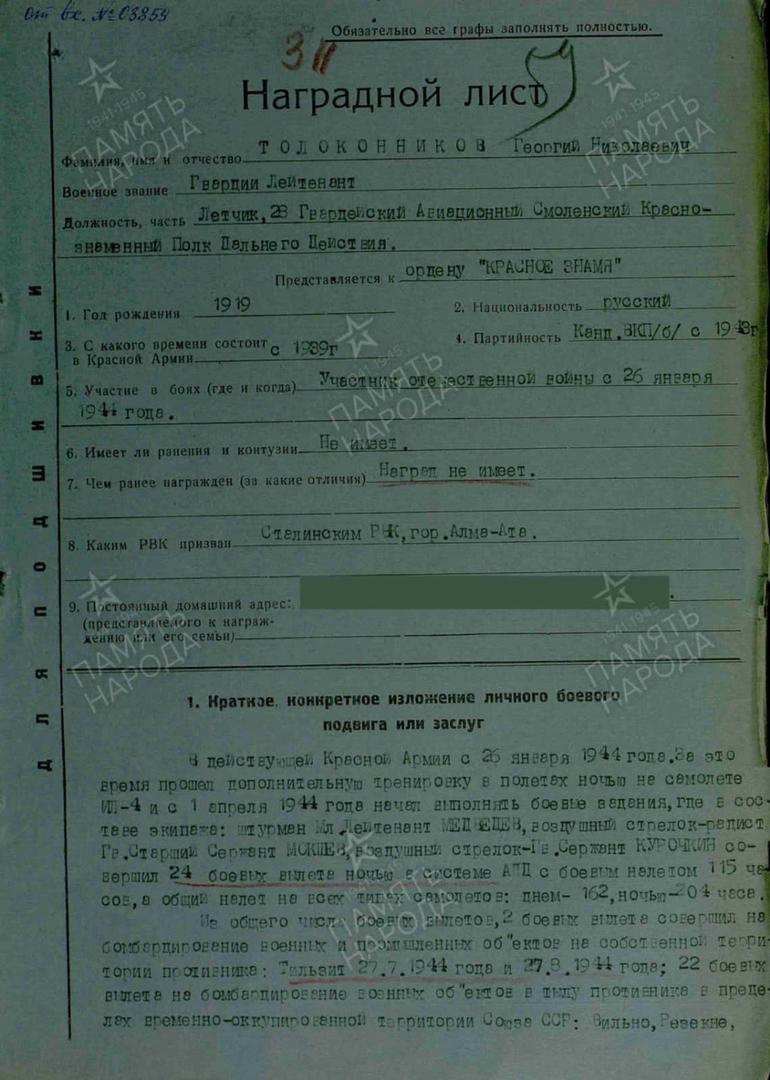 от вх. № 03859
Обязательно все графы заполнять полностью.
Наградной лист
Фамилия, имя и отчество ТОЛОКОННИКОВ Георгий Николаевич
Военное звание Гвардии Лейтенант
Должность, часть Летчик, 28 Гвардейский Авиационный Смоленский Красно-
знаменный Полк Дальнего Действия.
Представляется к ордену "КРАСНОЕ ЗНАМЯ"
1. Год рождения 1919 2. Национальность русский
3. С какого времени состоит в Красной Армии с 1939г 4. Партийность Канд. ВКП/б/ с 1943г
5. Участие в боях (где и когда) Участник отечественной войны с 26 января
1944 года.
6. Имеет ли ранения и контузии Не имеет.
7. Чем ранее награжден (за какие отличия) Наград не имеет.
8. Каким РВК призван Сталинским РВК, гор. Алма-Ата.
9. Постоянный домашний адрес:
(представляемого к награж-
дению или его семьи)
Для подшивки
1. Краткое, конкретное изложение личного боевого
подвига или заслуг
В действующей Красной Армии с 26 января 1944 года. За это
время прошел дополнительную тренировку в полетах ночью на самолете
ИЛ-4 и с 1 апреля 1944 года начал выполнять боевые задания, где в сос-
таве экипажа: штурман Мл. Лейтенант МЕДВЕДЕВ, воздушный стрелок-радист
Гв. Старший Сержант МОКШЕВ, воздушный стрелок-Гв. Сержант КУРОЧКИН со-
вершил 24 боевых вылета ночью в системе АДД с боевым налетом 115 ча-
сов, а общий налет на всех типах самолетов: днем- 162, ночью-204 часа.
Из общего числа боевых вылетов, 2 боевых вылета совершил на
бомбардирование военных и промышленных об"ектов на собственной терри-
тории противника: Тильзит 27.7.1944 года и 27.8.1944 года; 22 боевых
вылета на бомбардирование военных об"ектов в тылу противника в преде-
лах временно-оккупированной территории Союза ССР: Вильно, Резекне,
1941-1945
ПАМЯТЬ НАРОДА